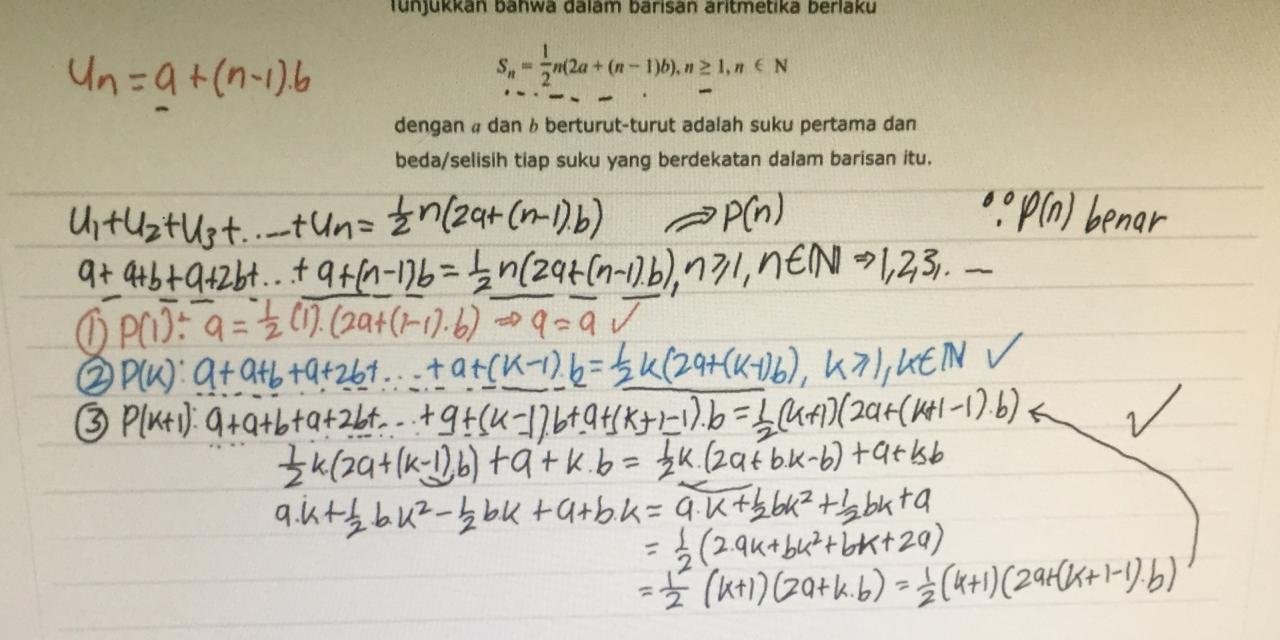 Tunjukkan bahwa dalam barisan aritmetika berlaku
Un = a + (n-1).b
Sₙ = 1/2 n(2a + (n − 1)b), n ≥ 1, n ∈ N
dengan a dan b berturut-turut adalah suku pertama dan
beda/selisih tiap suku yang berdekatan dalam barisan itu.
U₁+U₂+U₃+....+Un = ½n(2a+(n-1).b) ⇒ P(n) ∵ P(n) benar
a+a+b+a+2b+...+a+(n-1)b = ½n(2a+(n-1).b), n≥1, n∈ℕ ⇒ 1,2,3,...
① P(1): a = ½(1).(2a+(1-1).b) ⇒ a = a ✓
② P(k): a+a+b+a+2b+....+a+(k-1).b = ½k(2a+(k-1)b), k≥1, k∈ℕ ✓
③ P(k+1): a+a+b+a+2b+....+a+(k-1).b+a+(k+1-1).b = ½(k+1)(2a+(k+1-1).b) ✓
½k(2a+(k-1).b)+a+k.b = ½k.(2a+b.k-b)+a+k.b
a.k+½b.k²-½b.k+a+b.k = a.k+½bk²+½bk+a
= ½(2.ak+bk²+bk+2a)
= ½(k+1)(2a+k.b) = ½(k+1)(2a+(k+1-1).b)